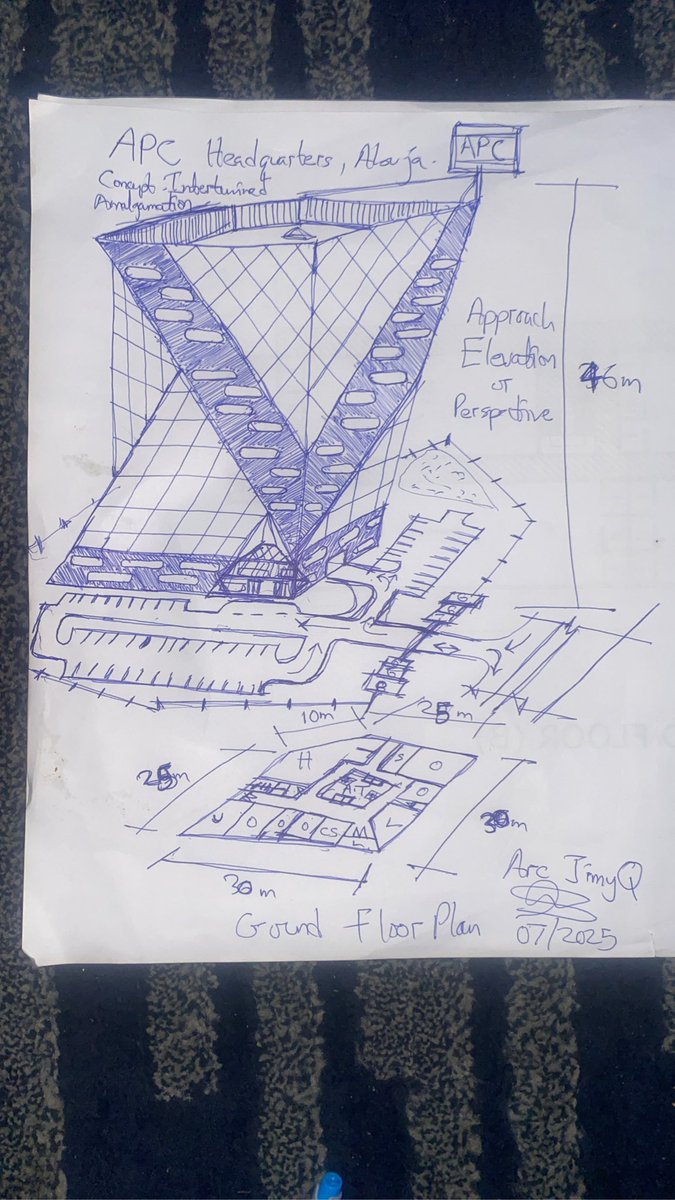 APC Headquarters, Abuja.
APC
Concept: Intertwined
Amalgamation
Approach
Elevation
or
Perspective
46m
10m
25m
25m
H
S
O
A.T
O
U
O
O
O
CS
M
L
L
30m
30m
Ground Floor Plan
Arc JimyQ
07/2025
FLOOR (B)